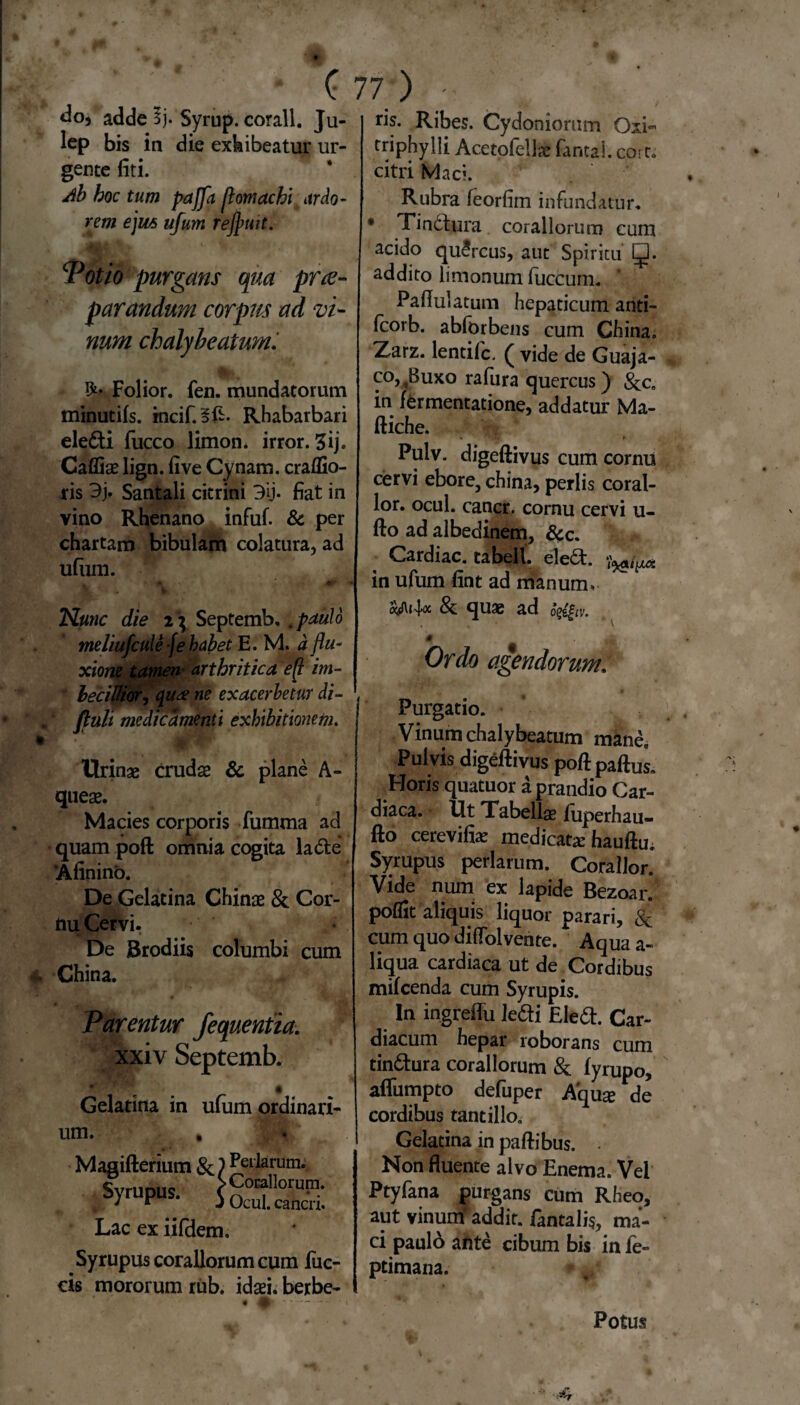 ( 77 )
do, adde ℥j. Syrup. corall. Ju-
lep bis in die exhibeatur ur-
gente ſiti.
Ab hoc tum paſſa ſtomachi ardo-
rem ejus uſum reſpuit.
Potio purgans qua præ-
parandum corpus ad vi-
num chalybeatum.
℞. Folior. ſen. mundatorum
minutiſs. inciſ. ℥ß. Rhabarbari
electi ſucco limon. irror. ʒij.
Caſſiæ lign. ſive Cynam. craſſio-
ris ℈j. Santali citrini ℈ij. fiat in
vino Rhenano infuſ. & per
chartam bibulam colatura, ad
uſum.
Nunc die 23 Septemb. paulò
meliuſculè ſe habet E. M. à flu-
xione tamen arthritica eſt im-
becillior, quæ ne exacerbetur di-
ſtuli medicamenti exhibitionem.
Urinæ crudæ & planè A-
queæ.
Macies corporis ſumma ad
quam poſt omnia cogita lacte
Aſinino.
De Gelatina Chinæ & Cor-
nu Cervi.
De Brodiis columbi cum
China.
Parentur ſequentia.
xxiv Septemb.
Gelatina in uſum ordinari-
um.
Magiſterium & } Perlarum.
Syrupus. } Corallorum.
} Ocul. cancri.
Lac ex iiſdem.
Syrupus corallorum cum ſuc-
cis mororum rub. idæi. berbe-
ris. Ribes. Cydoniorum Oxi-
triphylli Acetoſellæ ſantal. cort.
citri Maci.
Rubra ſeorſim infundatur.
Tinctura corallorum cum
acido quercus, aut Spiritu 🜍.
addito limonum ſuccum.
Paſſulatum hepaticum anti-
ſcorb. abſorbens cum China.
Zarz. lentiſc. ( vide de Guaja-
co, Buxo raſura quercus ) &c.
in fermentatione, addatur Ma-
ſtiche.
Pulv. digeſtivus cum cornu
cervi ebore, china, perlis coral-
lor. ocul. cancr. cornu cervi u-
ſto ad albedinem, &c.
Cardiac. tabell. elect.
in uſum ſint ad manum,
& quæ ad
Ordo agendorum.
Purgatio.
Vinum chalybeatum manè.
Pulvis digeſtivus poſt paſtus.
Horis quatuor à prandio Car-
diaca. Ut Tabellæ ſuperhau-
ſto cereviſiæ medicatæ hauſtu.
Syrupus perlarum. Corallor.
Vide num ex lapide Bezoar.
poſſit aliquis liquor parari, &
cum quo diſſolvente. Aqua a-
liqua cardiaca ut de Cordibus
miſcenda cum Syrupis.
In ingreſſu lecti Elect. Car-
diacum hepar roborans cum
tinctura corallorum & ſyrupo,
aſſumpto deſuper Aquæ de
cordibus tantillo.
Gelatina in paſtibus.
Non fluente alvo Enema. Vel
Ptyſana purgans cum Rheo,
aut vinum addit. ſantalis, ma-
ci paulò antè cibum bis in ſe-
ptimana.
Potus